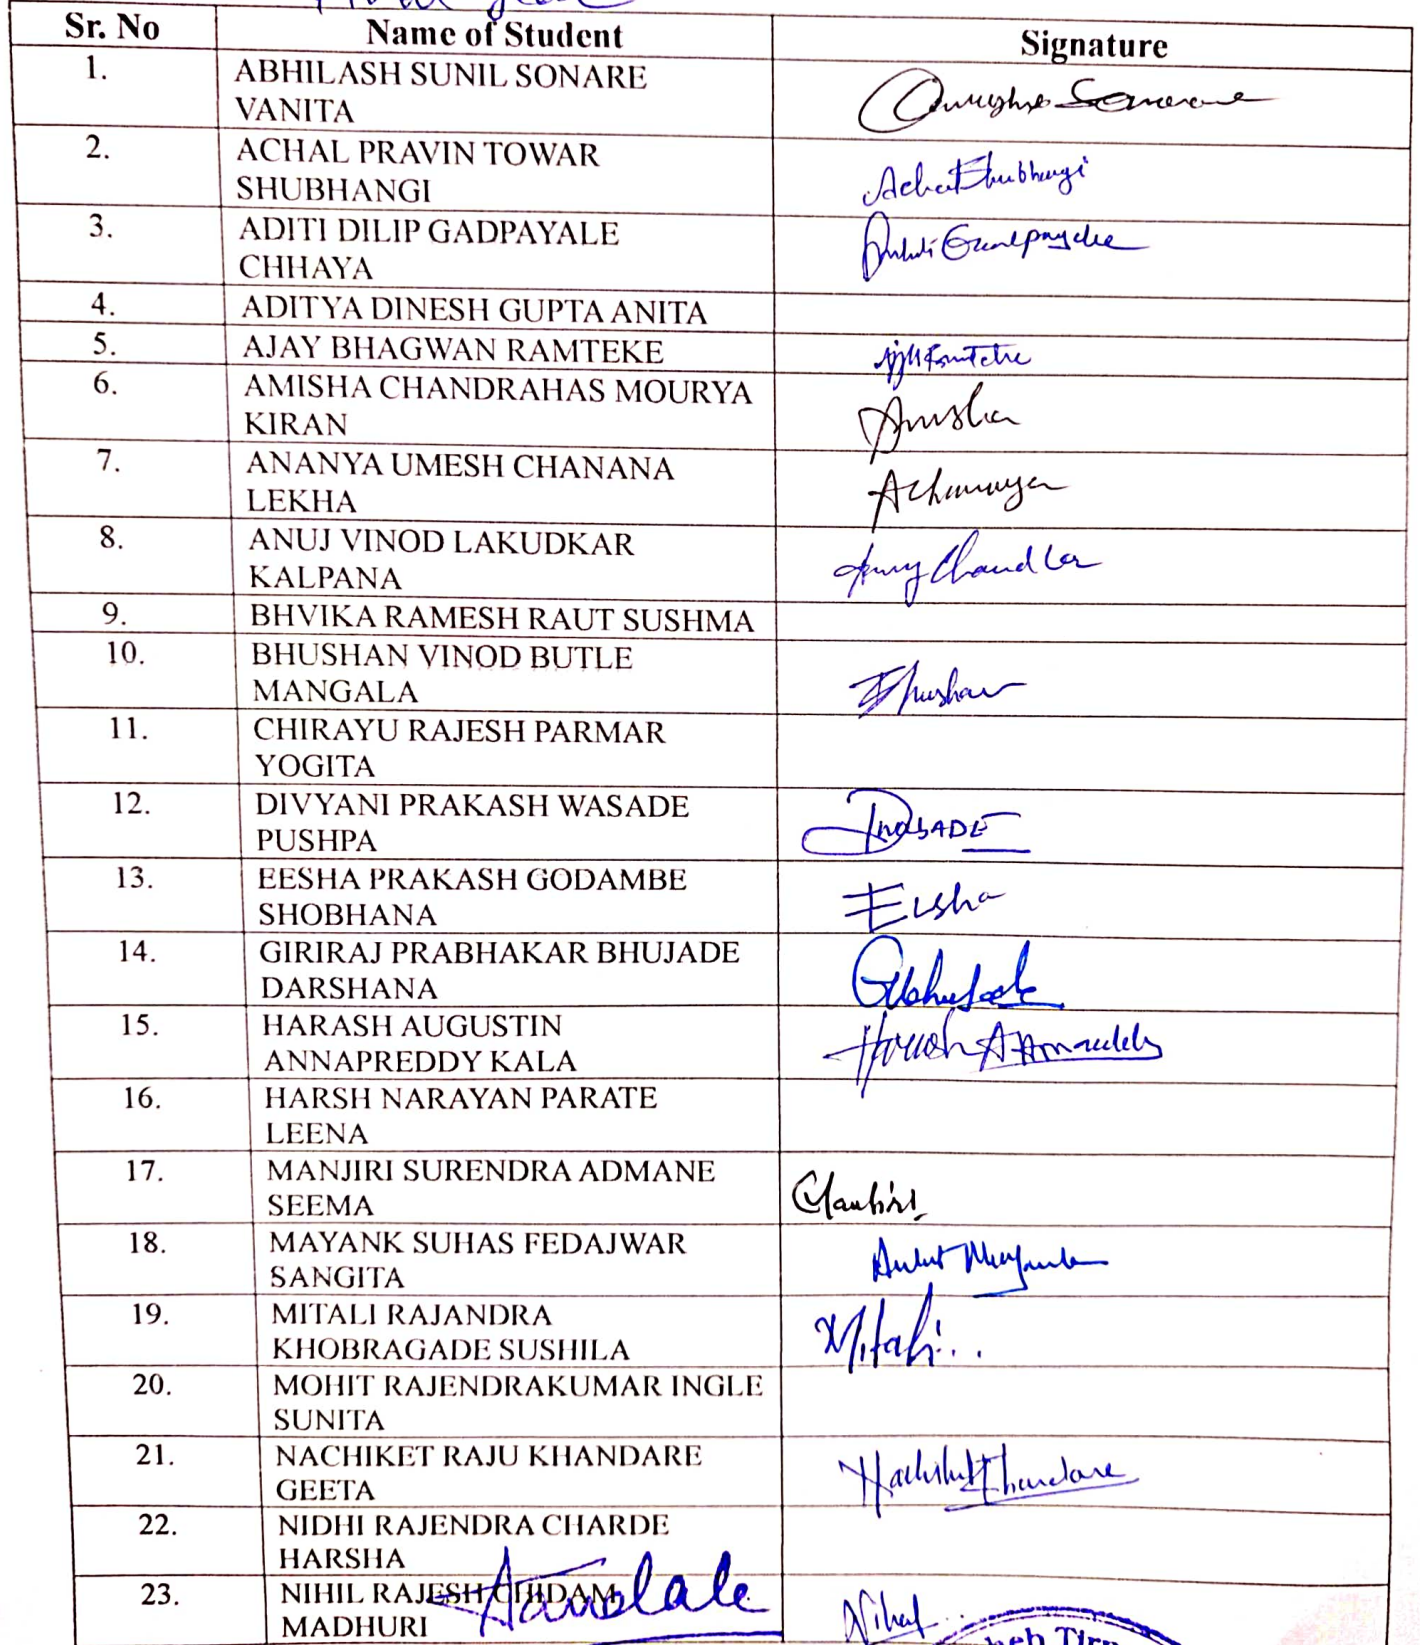 Sr. No Name of Student Signature
1. ABHILASH SUNIL SONARE
VANITA
2. ACHAL PRAVIN TOWAR
SHUBHANGI
3. ADITI DILIP GADPAYALE
CHHAYA
4. ADITYA DINESH GUPTA ANITA
5. AJAY BHAGWAN RAMTEKE
6. AMISHA CHANDRAHAS MOURYA
KIRAN
7. ANANYA UMESH CHANANA
LEKHA
8. ANUJ VINOD LAKUDKAR
KALPANA
9. BHVIKA RAMESH RAUT SUSHMA
10. BHUSHAN VINOD BUTLE
MANGALA
Bhushan
11. CHIRAYU RAJESH PARMAR
YOGITA
12. DIVYANI PRAKASH WASADE
PUSHPA
13. EESHA PRAKASH GODAMBE
SHOBHANA
14. GIRIRAJ PRABHAKAR BHUJADE
DARSHANA
15. HARASH AUGUSTIN
ANNAPREDDY KALA
16. HARSH NARAYAN PARATE
LEENA
17. MANJIRI SURENDRA ADMANE
SEEMA
18. MAYANK SUHAS FEDAJWAR
SANGITA
19. MITALI RAJANDRA
KHOBRAGADE SUSHILA
Mitali...
20. MOHIT RAJENDRAKUMAR INGLE
SUNITA
21. NACHIKET RAJU KHANDARE
GEETA
22. NIDHI RAJENDRA CHARDE
HARSHA
23. NIHIL RAJESH CHIDAM
MADHURI